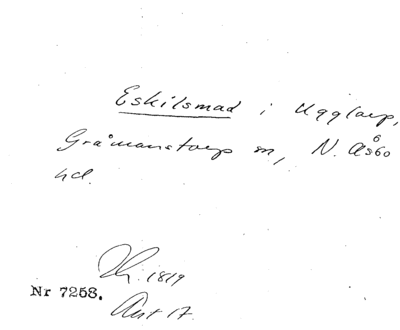 Eskilsmad i Ugglarp,
Gråmanstorp sn, N. Åsbo
hd.
1819
Nr 7258.
Akt 17.